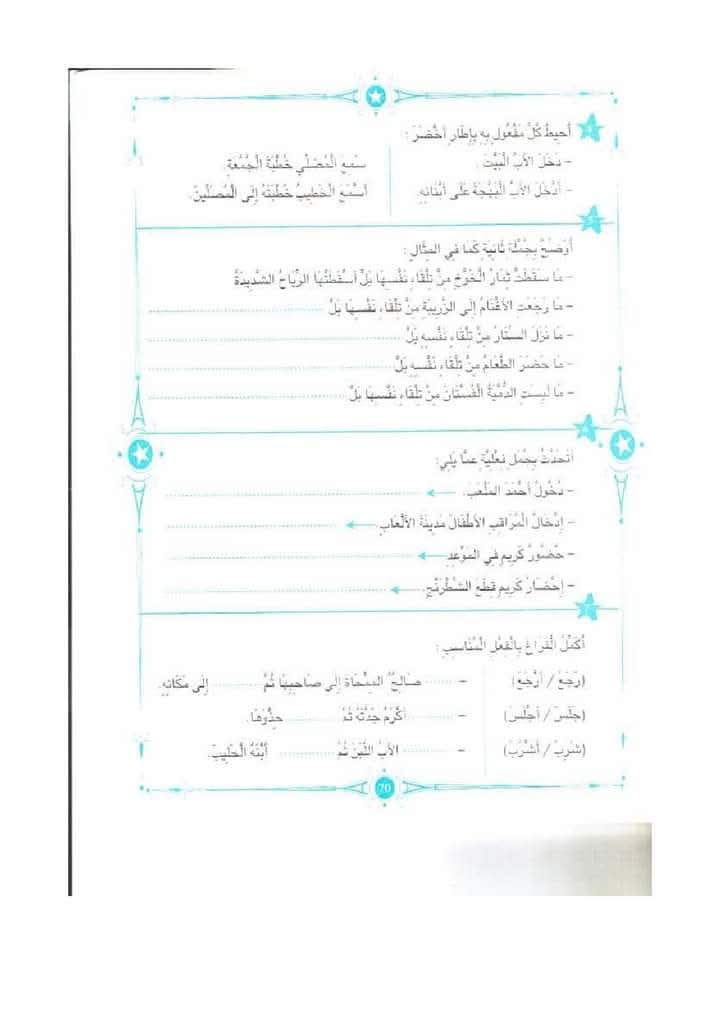 4 أُحِيطُ كُلَّ مَفْعُولٍ بِهِ بِإِطَارٍ أَخْضَرَ :
- دَخَلَ الأَبُ الْبَيْتَ. سَمِعَ الْمُصَلِّي خُطْبَةَ الْجُمُعَةِ.
- أَدْخَلَ الأَبُ الْبَهْجَةَ عَلَى أَبْنَائِهِ. أَسْمَعَ الْخَطِيبُ خُطْبَتَهُ إِلَى الْمُصَلِّينَ.
5 أُوَضِّحُ بِجُمْلَةٍ ثَانِيَةٍ كَمَا فِي الْمِثَالِ :
- مَا سَقَطَتْ ثِمَارُ الْخَوْخِ مِنْ تِلْقَاءِ نَفْسِهَا بَلْ أَسْقَطَتْهَا الرِّيَاحُ الشَّدِيدَةُ
- مَا رَجَعَتِ الأَغْنَامُ إِلَى الزَّرِيبَةِ مِنْ تِلْقَاءِ نَفْسِهَا بَلْ ....................
- مَا نَزَلَ السِّتَارُ مِنْ تِلْقَاءِ نَفْسِهِ بَلْ ....................
- مَا حَضَرَ الطَّعَامُ مِنْ تِلْقَاءِ نَفْسِهِ بَلْ ....................
- مَا لَبِسَتِ الدُّمْيَةُ الْفُسْتَانَ مِنْ تِلْقَاءِ نَفْسِهَا بَلْ ....................
6 أَتَحَدَّثُ بِجُمَلٍ فِعْلِيَّةٍ عَمَّا يَلِي:
- دُخُولُ أَحْمَدَ الْمَلْعَبَ. ← ....................
- إِدْخَالُ الْمُرَاقِبِ الأَطْفَالَ مَدِينَةَ الأَلْعَابِ. ← ....................
- حُضُورُ كَرِيمٍ فِي الْمَوْعِدِ ← ....................
- إِحْضَارُ كَرِيمٍ قِطَعَ الشَّطْرَنْجِ. ← ....................
7 أُكَمِّلُ الْفَرَاغَ بِالْفِعْلِ الْمُنَاسِبِ :
(رَجَعَ / أَرْجَعَ) - .......... صَالِحٌ الْمِمْحَاةَ إِلَى صَاحِبِهَا ثُمَّ .......... إِلَى مَكَانِهِ.
(جَلَسَ / أَجْلَسَ) - .......... أَكْرَمُ جَدَّتَهُ ثُمَّ .......... حِذْوَهَا.
(شَرِبَ / أَشْرَبَ) - .......... الأَبُ اللَّبَنَ ثُمَّ .......... ابْنَهُ الْحَلِيبَ.
70